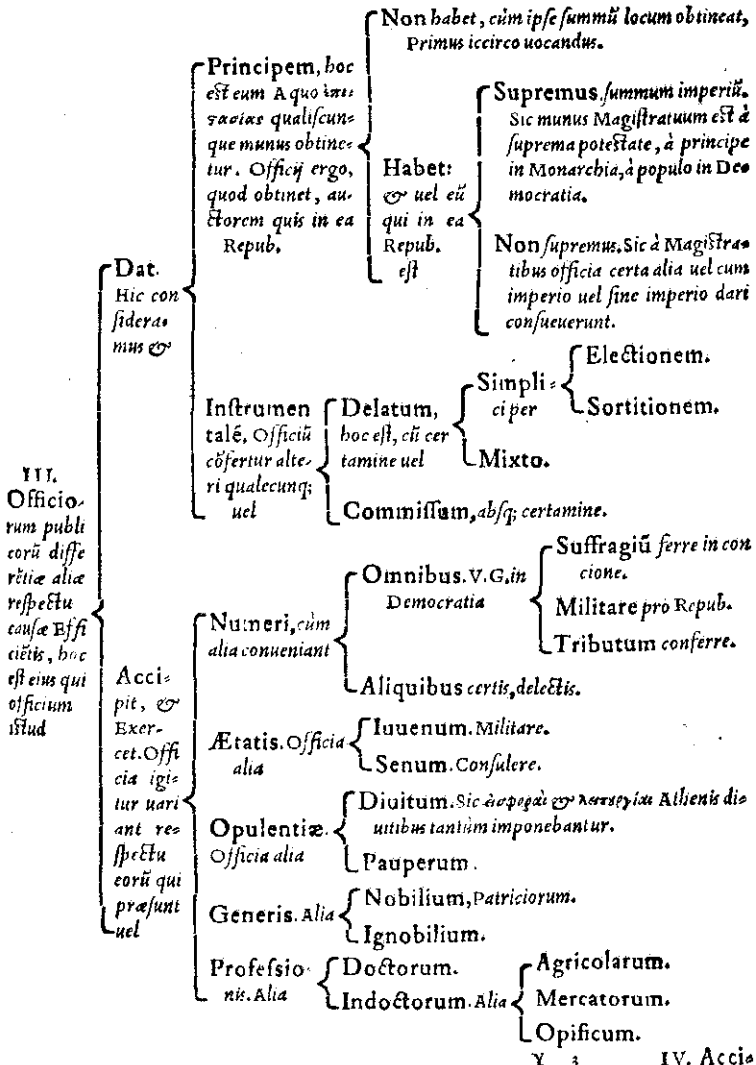 III.
Officio-
rum publi
corũ diffe
rẽtiæ aliæ
respectu
causæ Effi
ciẽtis, hoc
est eius qui
officium
istud
Dat.
Hic con
sidera-
mus &
Principem, hoc
est eum A quo
qualiscun-
que munus obtine-
tur. Officij ergo,
quod obtinet, au-
ctorem quis in ea
Repub.
Non habet, cùm ipse summũ locum obtineat,
Primus iccirco uocandus.
Habet:
& uel eũ
qui in ea
Repub.
est
Supremus, summum imperiũ.
Sic munus Magistratuum est à
suprema potestate, à principe
in Monarchia, à populo in De-
mocratia.
Non supremus. Sic à Magistra-
tibus officia certa alia uel cum
imperio uel sine imperio dari
consueuerunt.
Instrumen
talẽ. Officiũ
cõfertur alte-
ri qualecunq;
uel
Delatum,
hoc est, cũ cer
tamine uel
Simpli-
ci per
Electionem.
Sortitionem.
Mixto.
Commissum, absq; certamine.
Acci-
pit, &
Exer-
cet. Offi
cia igi-
tur uari
ant re-
spectu
eorũ qui
præsunt
uel
Numeri, cùm
alia conueniant
Omnibus. V.G. in
Democratia
Suffragiũ ferre in con
cione.
Militare pro Repub.
Tributum conferre.
Aliquibus certis, delectis.
Ætatis. Officia
alia
Iuuenum. Militare.
Senum. Consulere.
Opulentiæ.
Officia alia
Diuitum. Sic εἰσφοραὶ & λειτουργίαι Athenis di-
uitibus tantùm imponebantur.
Pauperum.
Generis. Alia
Nobilium, Patriciorum.
Ignobilium.
Professio-
nis. Alia
Doctorum.
Indoctorum. Alia
Agricolarum.
Mercatorum.
Opificum.
Y 3 IV. Acci-